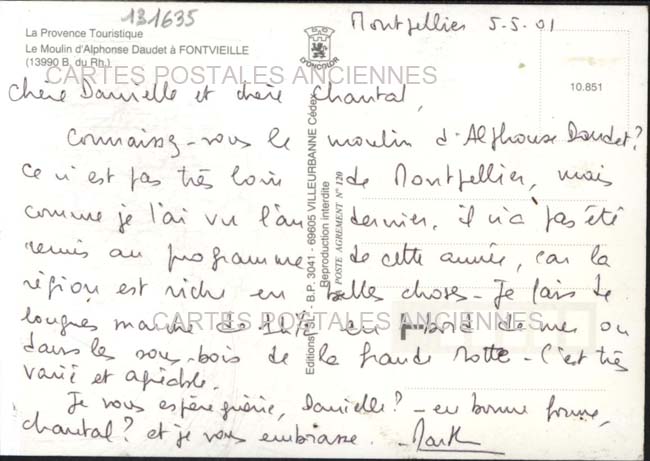 131635
Montpellier 5-5-01
La Provence Touristique
Le Moulin d'Alphonse Daudet à FONTVIEILLE
(13990 B. du Rh.)
D'ONCOLOR
10.851
CARTES POSTALES ANCIENNES
Chère Danielle et chère Chantal,
Connaissez-vous le moulin d'Alphonse Daudet?
Ce n'est pas très loin de Montpellier, mais
comme je l'ai vu l'an dernier, il n'a pas été
remis au programme de cette année, car la
région est riche en belles choses - Je fais de
longues marche de en bord de mer ou
dans les sous-bois de la grande Motte - C'est très
varié et agréable.
Je vous espère guérie, Danielle? - en bonne forme,
chantal? et je vous embrasse.
CARTES POSTALES ANCIENNES
Editions - B.P. 3041 - 69605 VILLEURBANNE Cédex
Reproduction interdite
POSTE AGREMENT N° 120